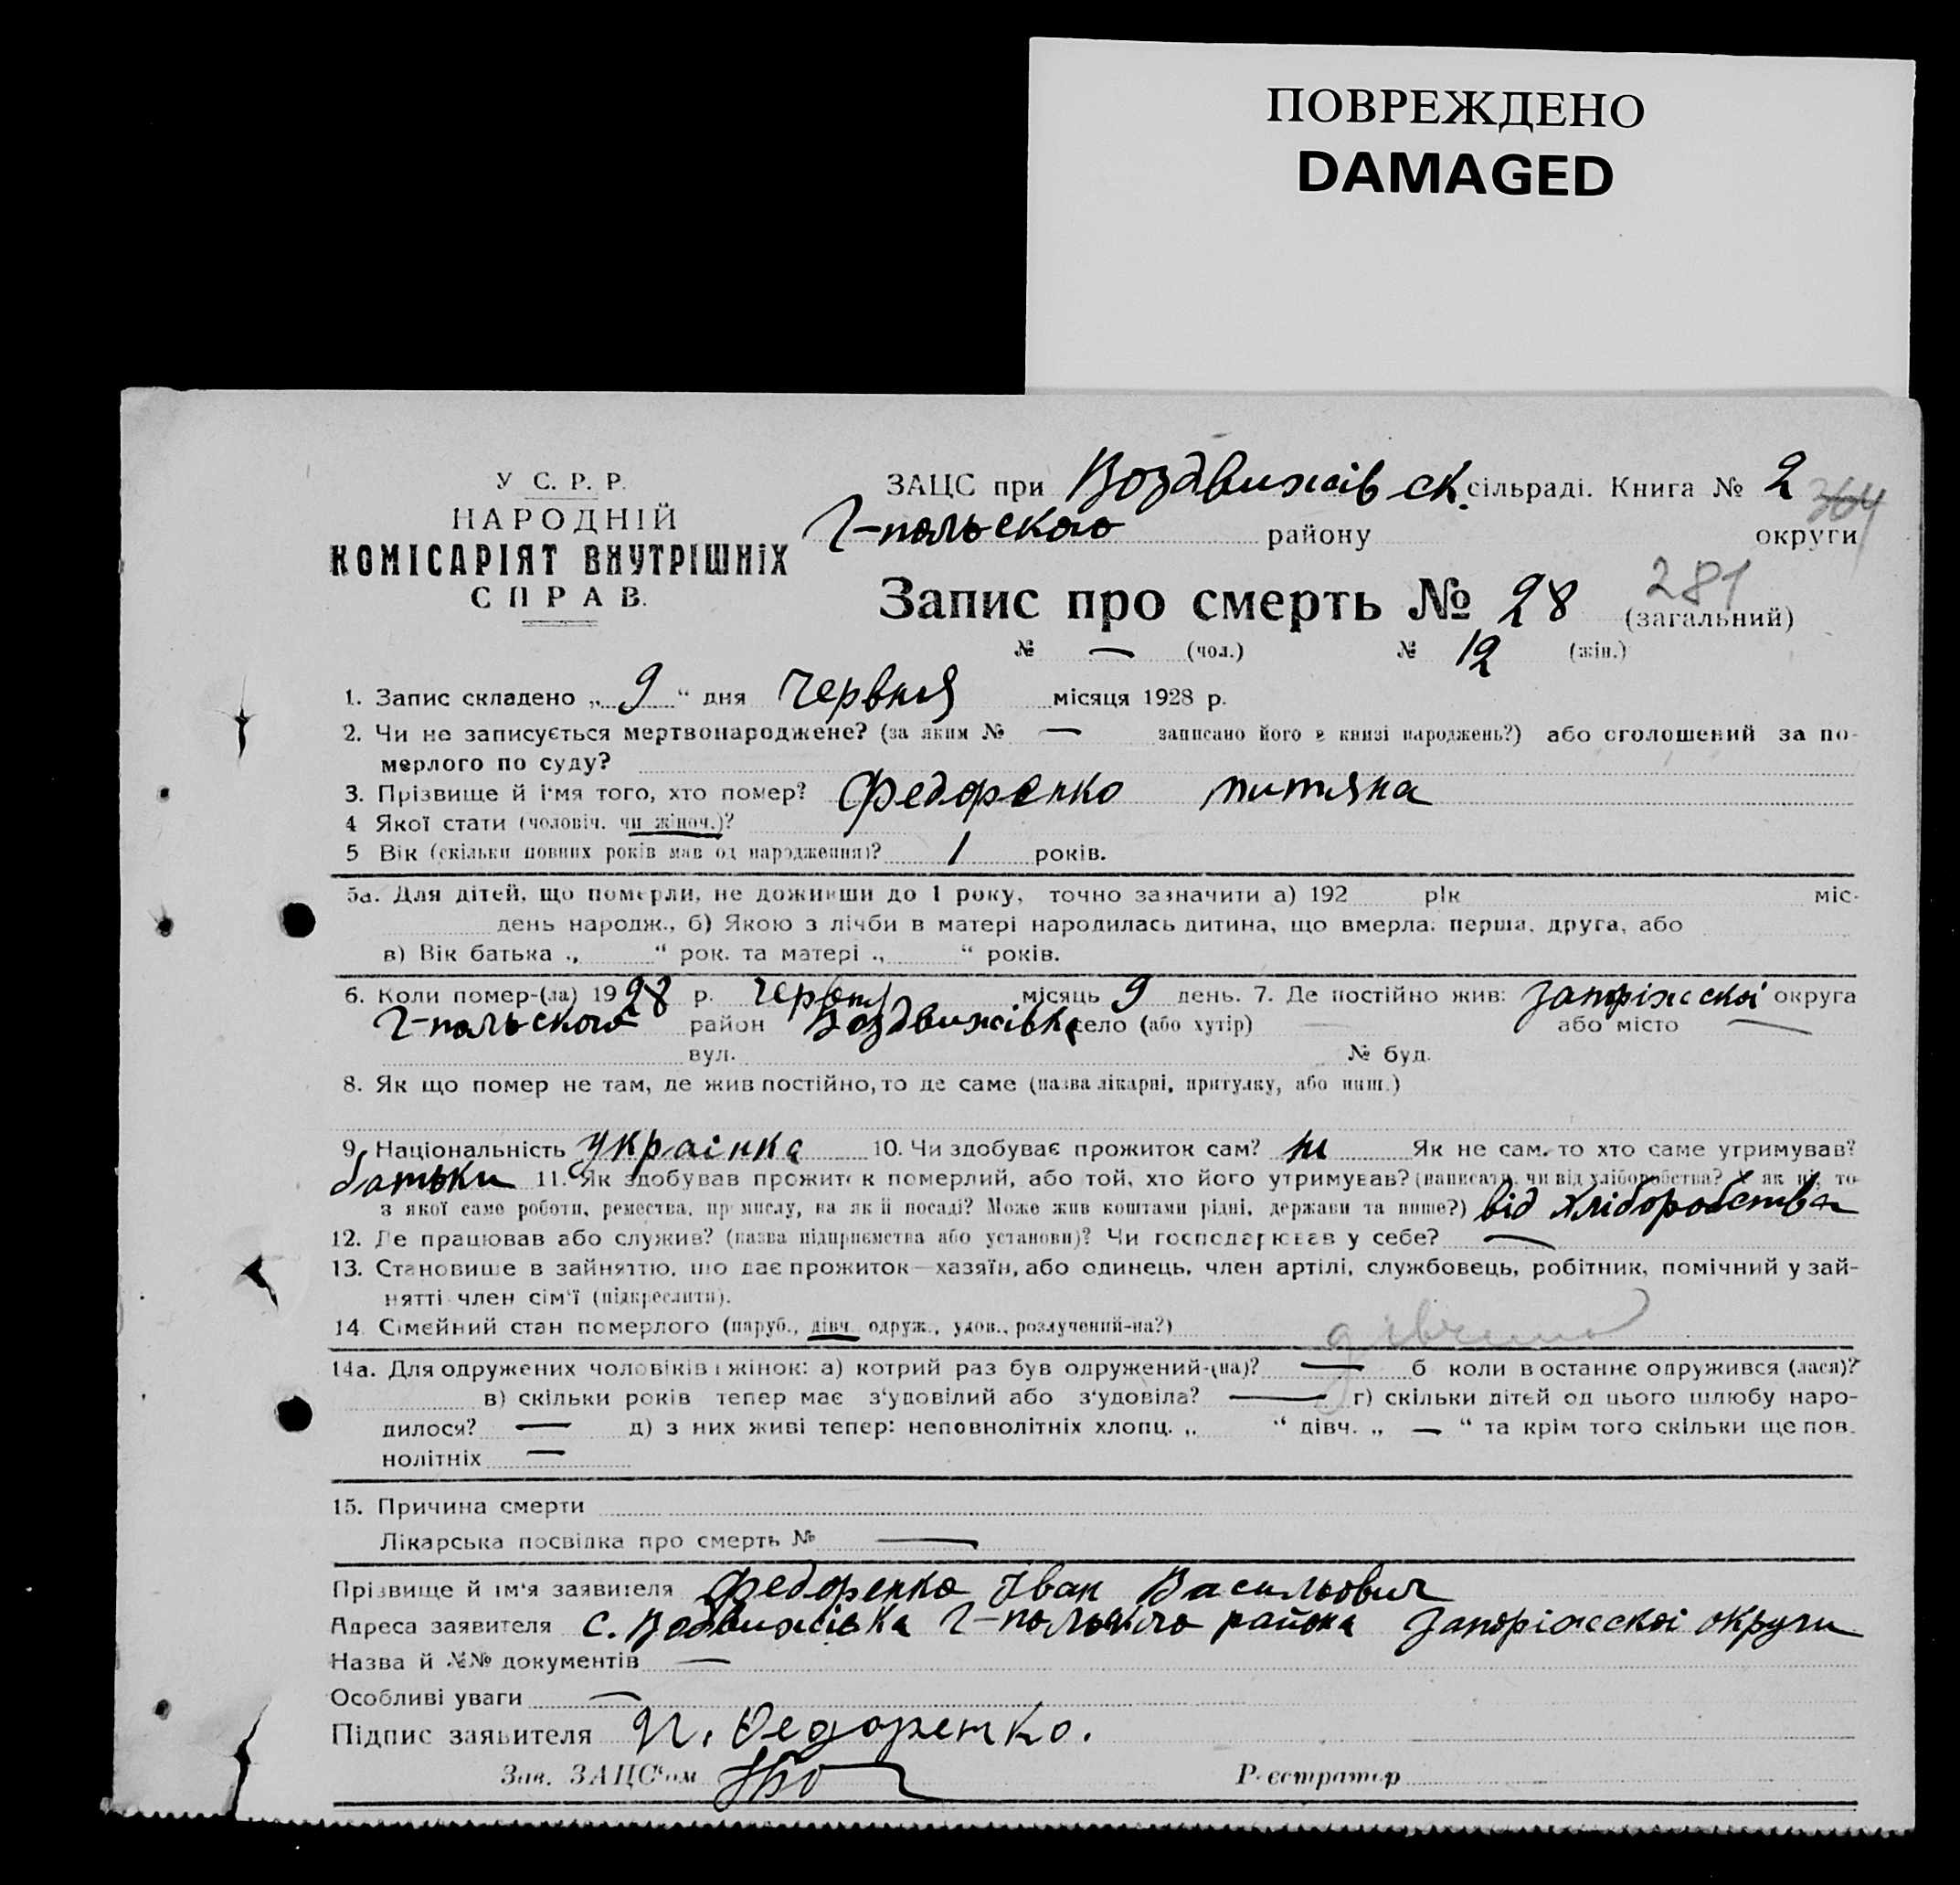 ПОВРЕЖДЕНО
DAMAGED
У С. Р. Р.
НАРОДНІЙ
КОМІСАРІЯТ ВНУТРІШНІХ
СПРАВ.
ЗАЦС при Воздвижівск. сільраді. Книга № 2
364
Г-польского району округи
Запис про смерть № 28 (загальний)
281
№ — (чол.) № 12 (жін.)
1. Запис складено „ 9 “ дня Червня місяця 1928 р.
2. Чи не записується мертвонароджене? (за яким № — записано його в книзі народжень?) або оголошений за по-
мерлого по суду?
3. Прізвище й і'мя того, хто помер? Федоренко
4 Якої стати (чоловіч. чи жіноч.)?
5 Вік (скільки повних років мав од народження)? 1 років.
5а. Для дітей, що померли, не доживши до 1 року, точно зазначити а) 192 рік міс-
день народж., б) Якою з лічби в матері народилась дитина, що вмерла: перша, друга, або
в) Вік батька „ “ рок. та матері „ “ років.
6. Коли помер-(ла) 1928 р. Червня місяць 9 день. 7. Де постійно жив: Запоріжскоі округа
Г-польского район Воздвижівка село (або хутір) — або місто —
вул. № буд.
8. Як що помер не там, де жив постійно, то де саме (назва лікарні, притулку, або инш.)
9. Національність Украінка 10. Чи здобуває прожиток сам? ні Як не сам, то хто саме утримував?
батьки 11. Як здобував прожиток померлий, або той, хто його утримував? (написати, чи від хліборобства? Як ні, то
з якої саме роботи, ремества, промислу, на якій посаді? Може жив коштами рідні, держави та инше?) від хліборобства
12. Де працював або служив? (назва підприємства або установи)? Чи господарював у себе? —
13. Становище в зайняттю, що дає прожиток—хазяїн, або одинець, член артілі, службовець, робітник, помічний у зай-
нятті член сім'ї (підкреслити).
14 Сімейний стан померлого (паруб., дівч. одруж., удов., розлучений-на?)
14а. Для одружених чоловіків і жінок: а) котрий раз був одружений-(на)? — б коли востаннє одружився (лася)?
в) скільки років тепер має з'удовілий або з'удовіла? — г) скільки дітей од цього шлюбу наро-
дилося? — д) з них живі тепер: неповнолітніх хлопц. „ “ дівч. „ — “ та крім того скільки ще пов-
нолітніх —
15. Причина смерти
Лікарська посвідка про смерть № —
Прізвище й ім'я заявителя Федоренко Іван Васильович
Адреса заявителя с. Воздвижівка Г-польского района Запоріжскоі округи
Назва й №№ документів —
Особливі уваги —
Підпис заявителя И. Федоренко.
Зав. ЗАЦС'ом Реєстратор